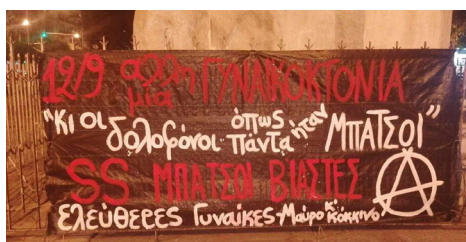 12/9 άλλη μια ΓΥΝΑΙΚΟΚΤΟΝΙΑ
"κι οι δολοφόνοι όπως πάντα ήταν ΜΠΑΤΣΟΙ"
SS ΜΠΑΤΣΟΙ ΒΙΑΣΤΕΣ
ελεύθερες Γυναίκες - Μαύρο κ' κόκκινο